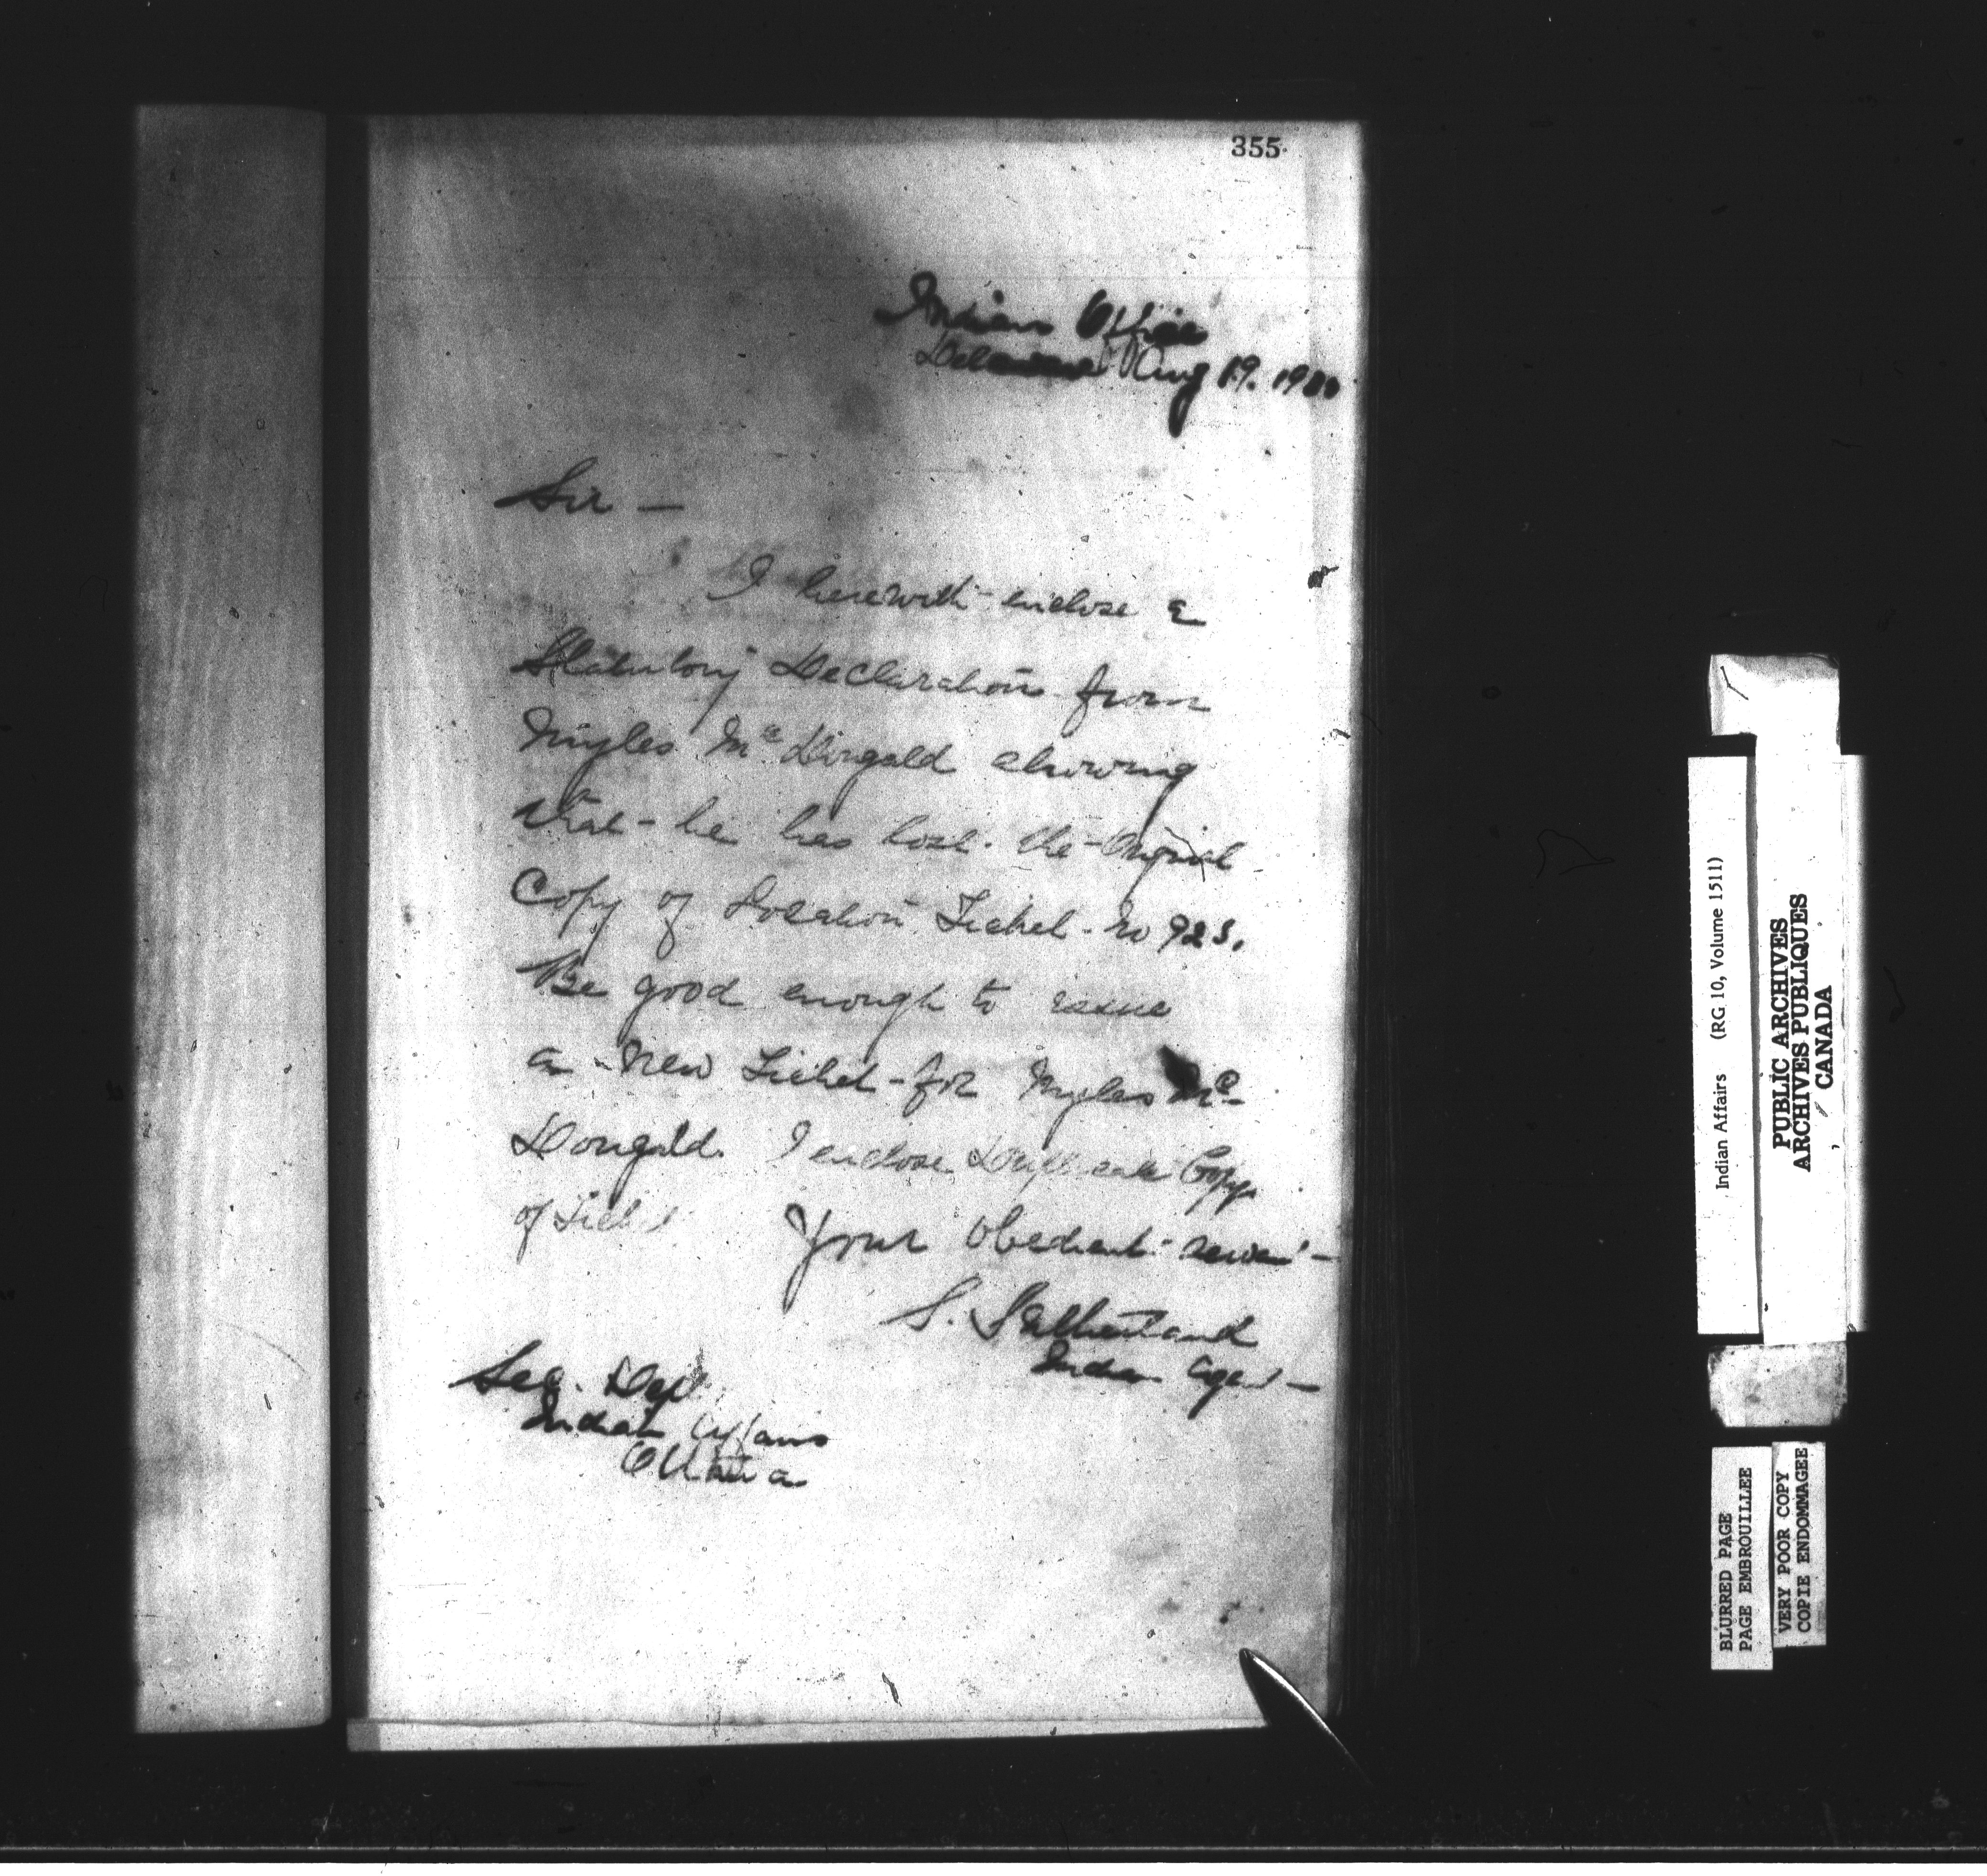 355
Indian Office
Delaware Aug 19. 190
Sir —
I herewith enclose a
Statutory Declaration from
Myles Mc Dougald showing
that he has lost the Original
Copy of Location Ticket No 923.
Be good enough to issue
a New Ticket for Myles Mc
Dougald. I enclose Duplicate Copy
of Ticket
Your Obedient servant
S. Sutherland
Indian Agent
Sec. Dept
Indian Affairs
Ottawa
Indian Affairs (RG 10, Volume 1511)
PUBLIC ARCHIVES
ARCHIVES PUBLIQUES
CANADA
BLURRED PAGE
PAGE EMBROUILLEE
VERY POOR COPY
COPIE ENDOMMAGEE